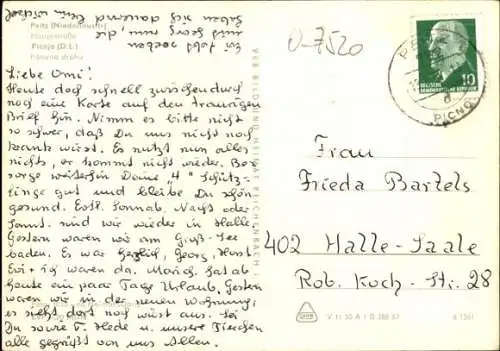 Peitz (Niederlausitz)
Hauptstraße
Picnjo (D. L.)
Liebe Omi!
Heute doch schnell zwischendurch
noch eine Karte auf den traurigen
Brief hin. Nimm es bitte nicht
so schwer, daß Du uns nicht noch
krank wirst. Es nutzt nun alles
nichts, er kommt nicht wieder.
sorge weiterhin Deine "4" Schütz-
linge gut und bleibe Du schön
gesund. Evtl. Sonnab. Nacht oder
Sonnt. sind wir wieder in Halle.
Gestern waren wir am Groß-See
baden. Es war herrlich, Georg, Horst
Evi + ich waren da. hat ab
heute ein paar Tage Urlaub. Gestern
waren wir in der neuen Wohnung,
es sieht dort noch wüst aus. Sei
Du sowie T. Hede u. unsere Tierchen
alle gegrüßt von uns Allen.
Evi
und Georg nun, die
haben sich dauernd
VEB BILD UND HEIMAT REICHENBACH I. V.
0-7520
PE
PICNJO
d
DEUTSCHE
DEMOKRATISCHE REPUBLIK
10
Frau
Frieda Bartels
402 Halle-Saale
Rob. Koch-Str. 28
V 11 50 A 1 G